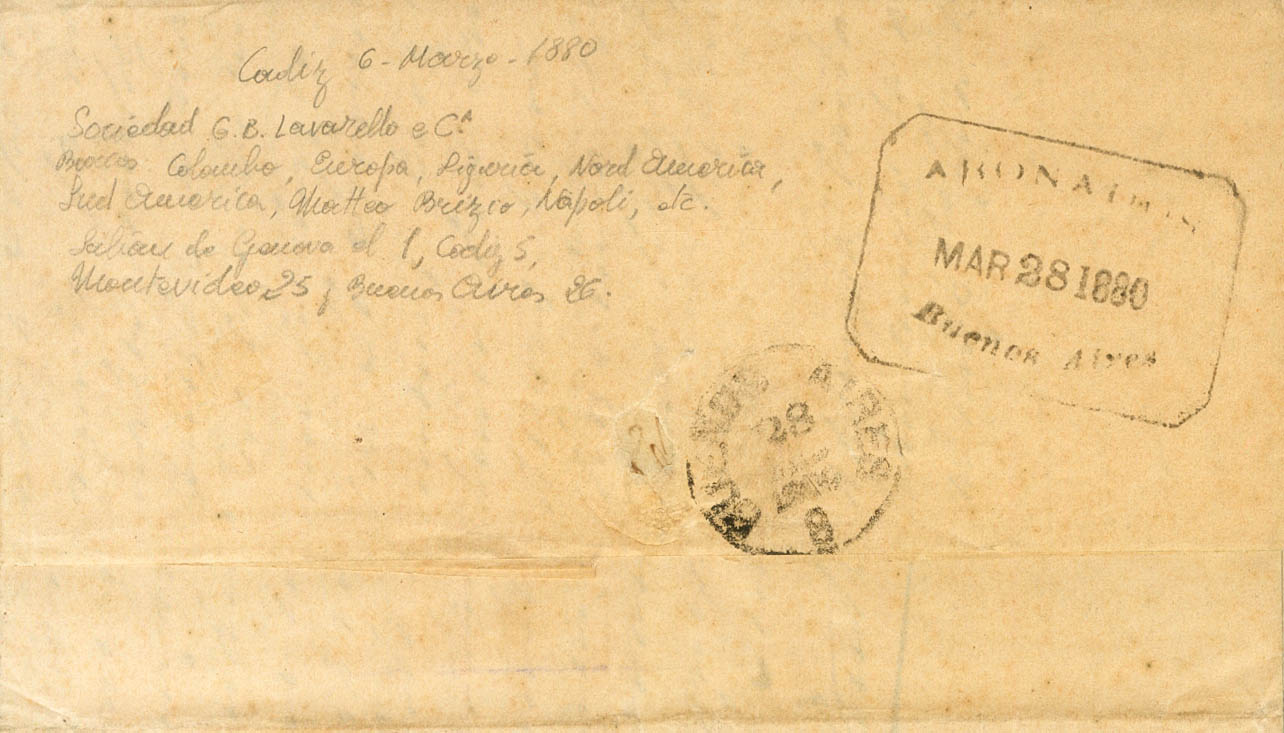 Cadiz 6 - Marzo - 1880
Sociedad G. B. Lavarello e Cª
Barcos Colombo, Europa, Liguria, Nord America,
Sud America, Matteo Brizio, Napoli, etc.
Salian de Genova el 1, Cadiz 5,
Montevideo 25 y Buenos Aires 26.
MAR 28 1880
Buenos Aires
BUENOS AIRES
28